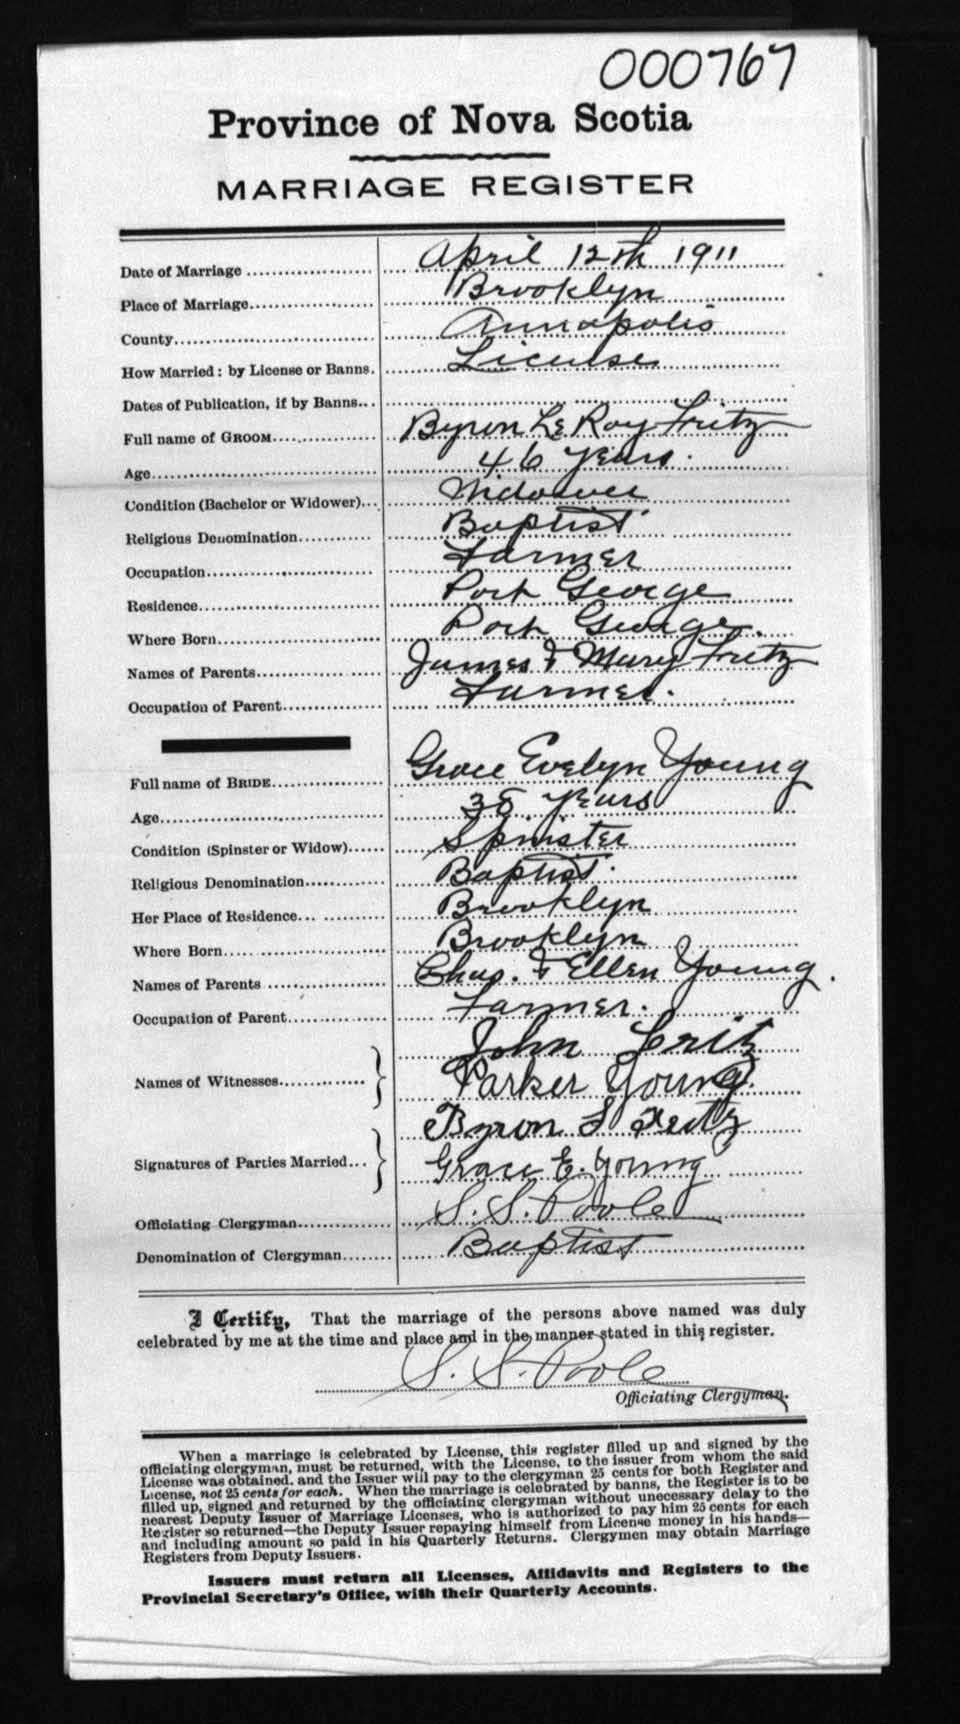 000767
Province of Nova Scotia
MARRIAGE REGISTER
Date of Marriage April 12th 1911
Place of Marriage Brooklyn
County Annapolis
How Married: by License or Banns. License
Dates of Publication, if by Banns
Full name of GROOM Byron Le Roy Fritz
Age 46 years.
Condition (Bachelor or Widower) Widower
Religious Denomination Baptist
Occupation Farmer
Residence Port George
Where Born Port George.
Names of Parents James & Mary Fritz
Occupation of Parent Farmer.
Full name of BRIDE Grace Evelyn Young
Age years
Condition (Spinster or Widow) Spinster
Religious Denomination Baptist.
Her Place of Residence Brooklyn
Where Born Brooklyn
Names of Parents Chas. & Ellen Young.
Occupation of Parent Farmer.
John Fritz
Names of Witnesses Parker Young.
Byron L Fritz
Signatures of Parties Married Grace E. Young
Officiating Clergyman S. S. Poole
Denomination of Clergyman Baptist
I Certify, That the marriage of the persons above named was duly
celebrated by me at the time and place and in the manner stated in this register.
S. S. Poole
Officiating Clergyman.
When a marriage is celebrated by License, this register filled up and signed by the
officiating clergyman, must be returned, with the License, to the issuer from whom the said
License was obtained, and the Issuer will pay to the clergyman 25 cents for both Register and
License, not 25 cents for each. When the marriage is celebrated by banns, the Register is to be
filled up, signed and returned by the officiating clergyman without unnecessary delay to the
nearest Deputy Issuer of Marriage Licenses, who is authorized to pay him 25 cents for each
Register so returned—the Deputy Issuer repaying himself from License money in his hands—
and including amount so paid in his Quarterly Returns. Clergymen may obtain Marriage
Registers from Deputy Issuers.
Issuers must return all Licenses, Affidavits and Registers to the
Provincial Secretary's Office, with their Quarterly Accounts.